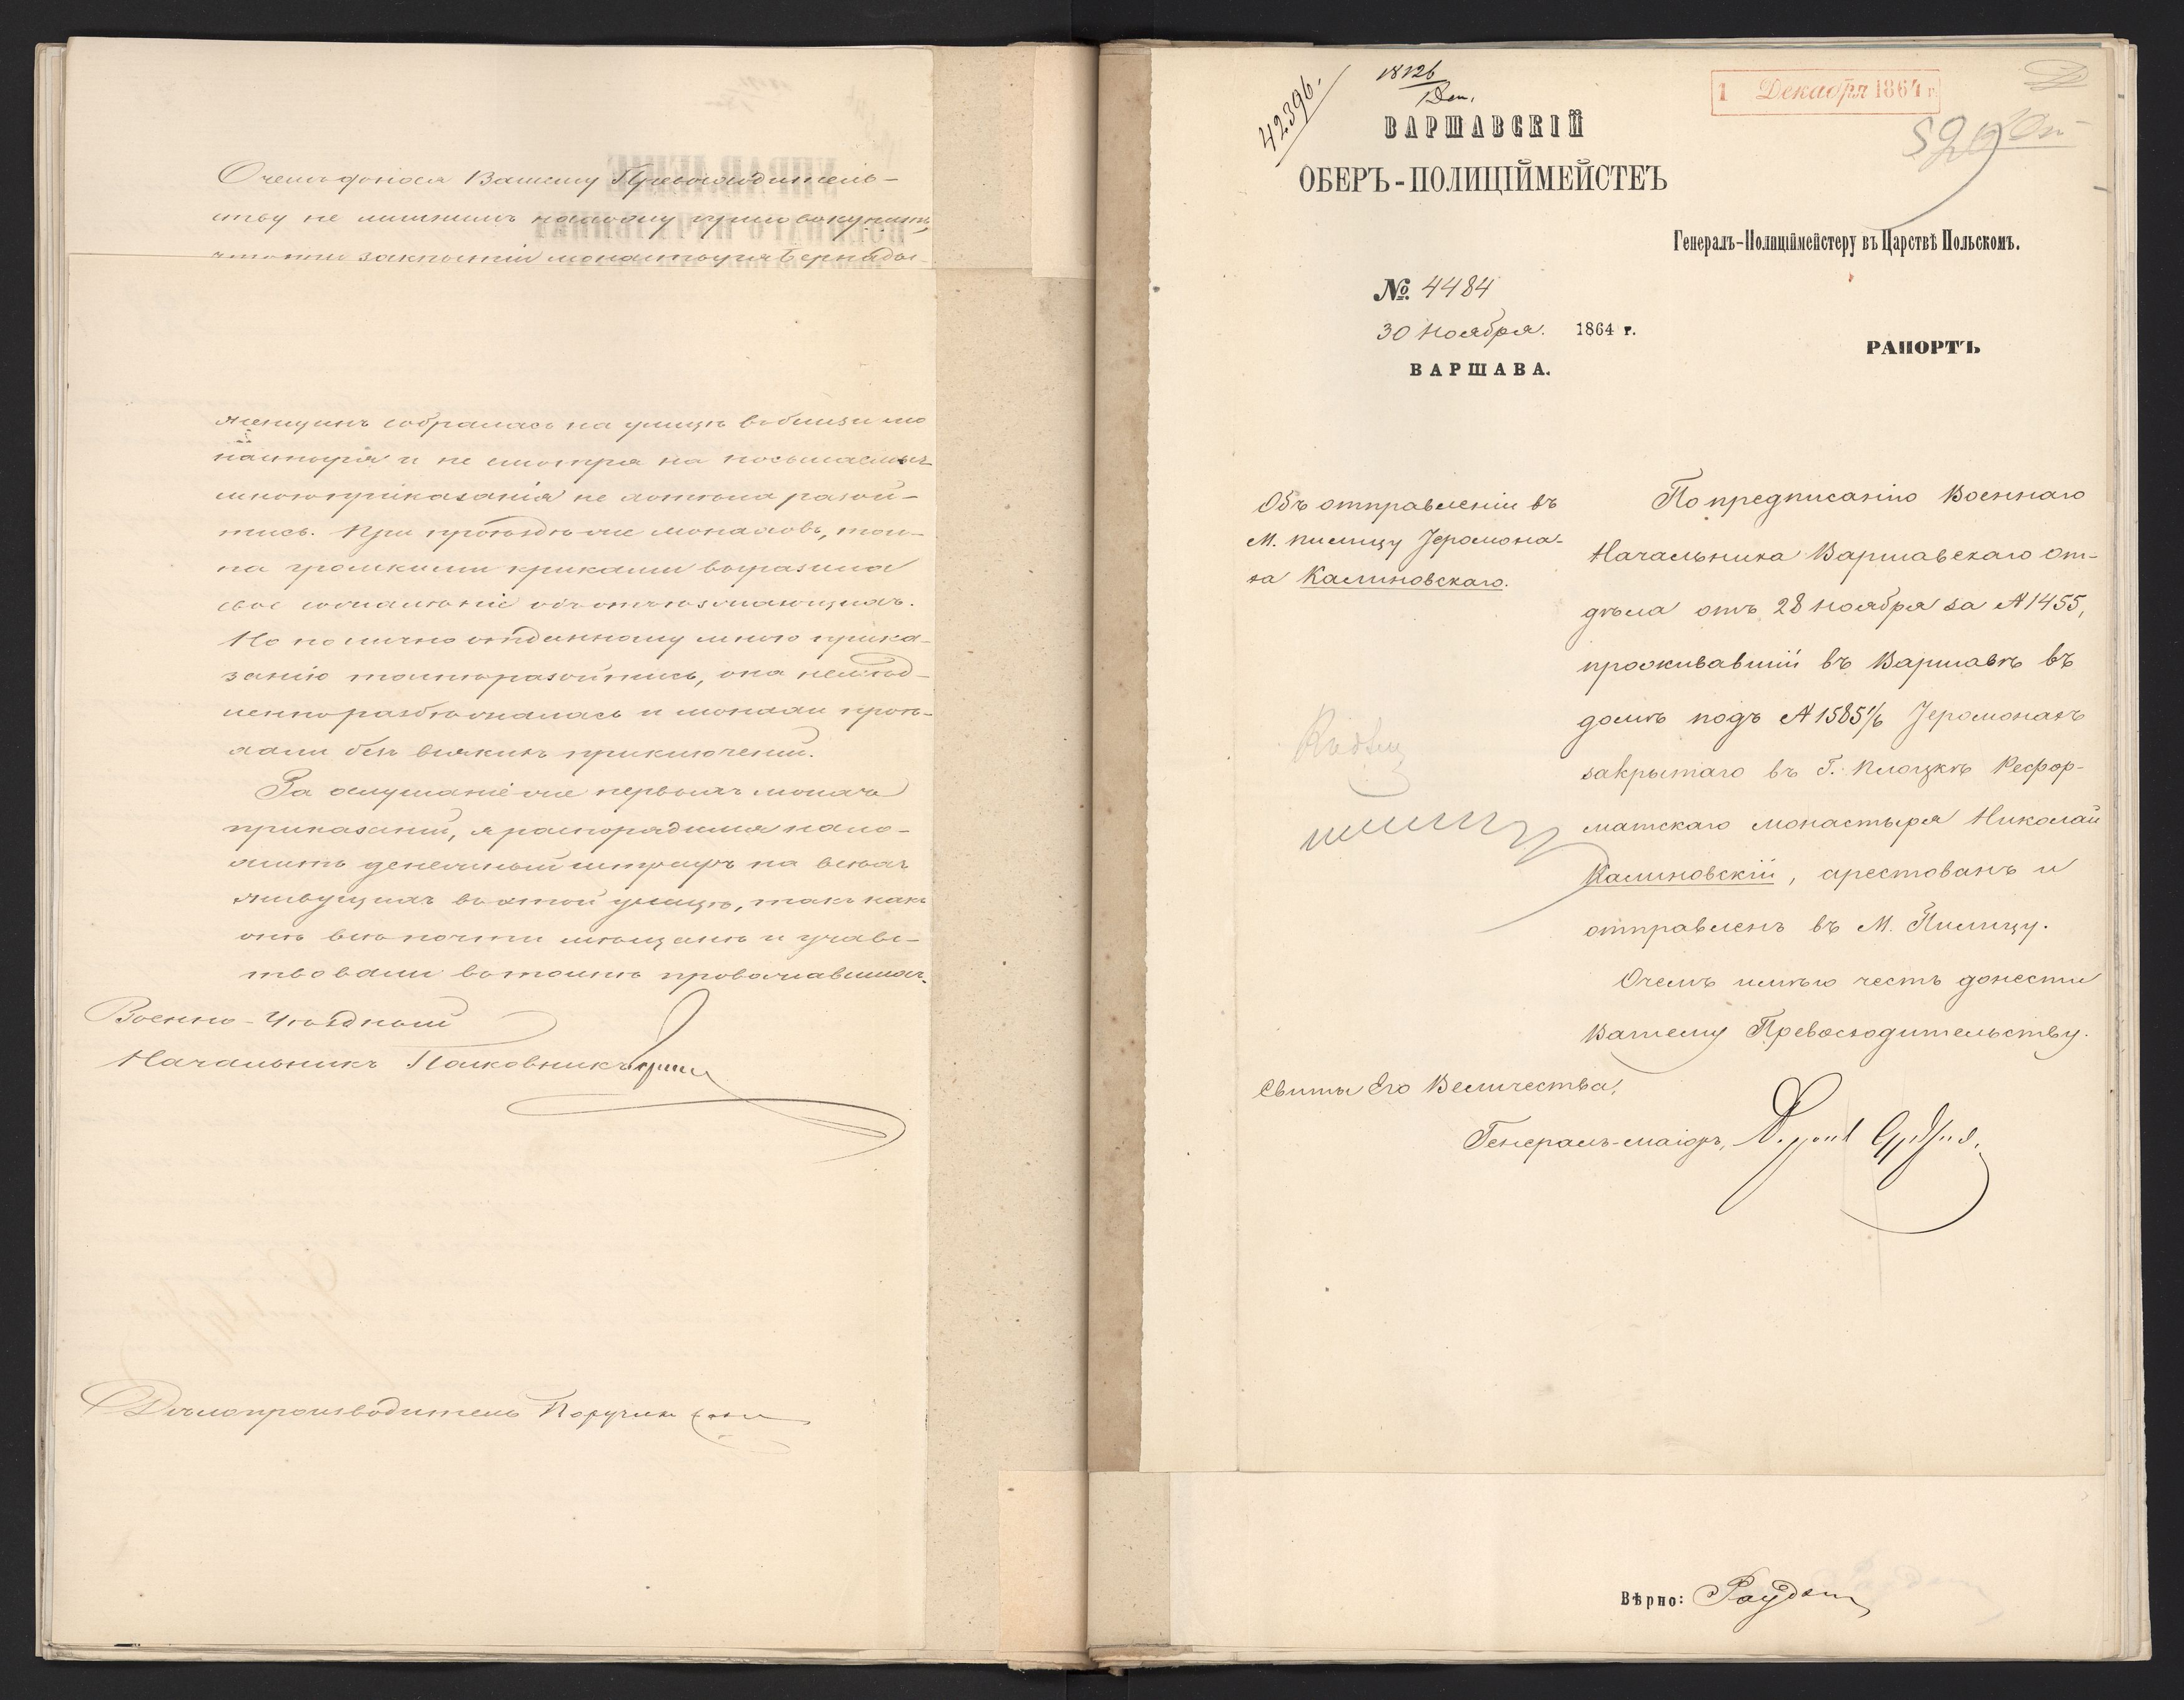 О чемъ донося Вашему Превосходитель-
ству не лишнимъ нахожу присовокупить,
что при закрытіи монастыря Бернады-
женщинъ собралась на улицѣ вблизи мо
настыря и не смотря на посылаемыя
мною приказанія не хотѣла разой-
тись. При проѣздѣ же монаховъ, тол-
па громкими криками выразила
свое сожалѣніе объ отъѣзжающихъ.
Но по лично отданному мною прика-
занію толпѣ разойтись, она немед-
ленно разбѣжалась и монахи проѣ-
хали безъ всякихъ приключеній.
За ослушаніе же первыхъ моихъ
приказаній, я распорядился нало-
жить денежный штрафъ на всѣхъ
живущихъ въ этой улицѣ, такъ какъ
онѣ всѣ почти мѣщане и участ-
вовали въ толпѣ провожавшихъ.
Военно-Уѣздный
Начальникъ Полковникъ
Дѣлопроизводитель Поручикъ
42396.
18126
Дек.
1 Декабря 1864 г.
ВАРШАВСКІЙ
ОБЕРЪ-ПОЛИЦІЙМЕЙСТЕЪ
Генералъ-Полиціймейстеру въ Царствѣ Польскомъ.
№ 4484
30 Ноября. 1864 г.
ВАРШАВА.
РАПОРТЪ
Объ отправленіи въ
М. Пилицу Іеромона-
ха Калиновскаго.
По предписанію Военнаго
Начальника Варшавскаго от-
дѣла отъ 28 Ноября за № 1455,
проживавшій въ Варшавѣ въ
домѣ подъ № 1585 1/6 Іеромонахъ
закрытаго въ Г. Плоцкѣ Рефор-
матскаго монастыря Николай
Калиновскій, арестованъ и
отправленъ въ М. Пилицу.
О чемъ имѣю честь донести
Вашему Превосходительству.
Свиты Его Величества,
Генералъ-маіоръ,
Вѣрно: